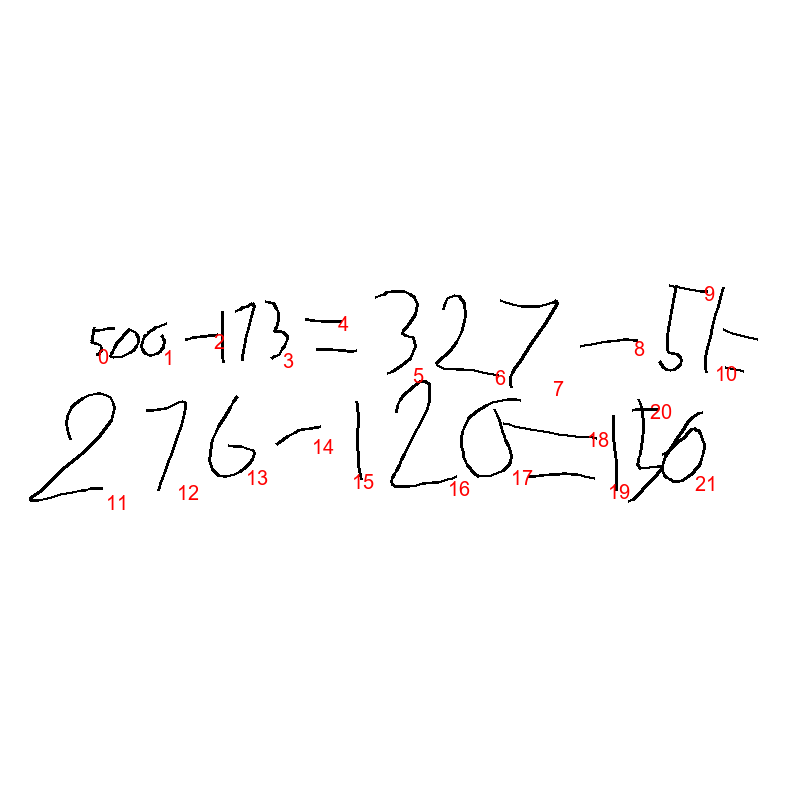 500-173=327-51=
0 1 2 3 4 5 6 7 8 9 10
276-120=156
11 12 13 14 15 16 17 18 19 20 21